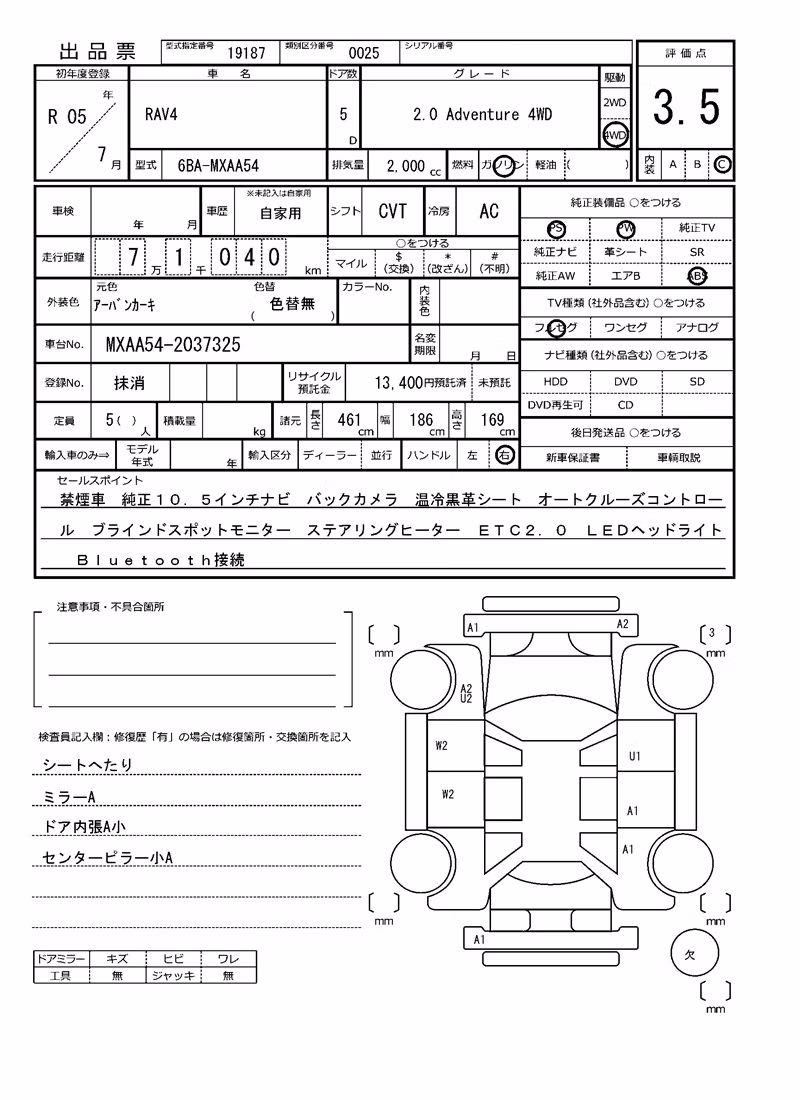 出品票 型式指定番号 19187 類別区分番号 0025 シリアル番号
評価点
3.5
内装 A B C
初年度登録 車名 ドア数 グレード 駆動
R 05 年 7 月 RAV4 5 D 2.0 Adventure 4WD 2WD 4WD
型式 6BA-MXAA54 排気量 2,000 cc 燃料 ガソリン 軽油 ( )
車検 年 月 車歴 ※未記入は自家用 自家用 シフト CVT 冷房 AC
走行距離 7 万 1 千 0 4 0 km ○をつける マイル $ (交換) * (改ざん) # (不明)
外装色 元色 アーバンカーキ 色替 色替無 ( ) カラーNo. 内装色
車台No. MXAA54-2037325 名変期限 月 日
登録No. 抹消 リサイクル預託金 13,400円預託済 未預託
定員 5 ( ) 人 積載量 kg 諸元 長さ 461 cm 幅 186 cm 高さ 169 cm
輸入車のみ⇒ モデル年式 年 輸入区分 ディーラー 並行 ハンドル 左 右
純正装備品 ○をつける
PS PW 純正TV
純正ナビ 革シート SR
純正AW エアB ABS
TV種類(社外品含む) ○をつける
フルセグ ワンセグ アナログ
ナビ種類(社外品含む) ○をつける
HDD DVD SD
DVD再生可 CD
後日発送品 ○をつける
新車保証書 車輌取説
セールスポイント
禁煙車 純正10.5インチナビ バックカメラ 温冷黒革シート オートクルーズコントロー
ル ブラインドスポットモニター ステアリングヒーター ETC2.0 LEDヘッドライト
Bluetooth接続
注意事項・不具合箇所
検査員記入欄:修復歴「有」の場合は修復箇所・交換箇所を記入
シートへたり
ミラーA
ドア内張A小
センターピラー小A
ドアミラー キズ ヒビ ワレ
工具 無 ジャッキ 無
A1 A2
( ) mm
( 3 ) mm
A2
U2
W2
U1
W2
A1
A1
( ) mm
( ) mm
A1
欠
( ) mm